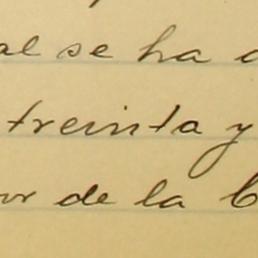 al se ha
treinta y
or de la